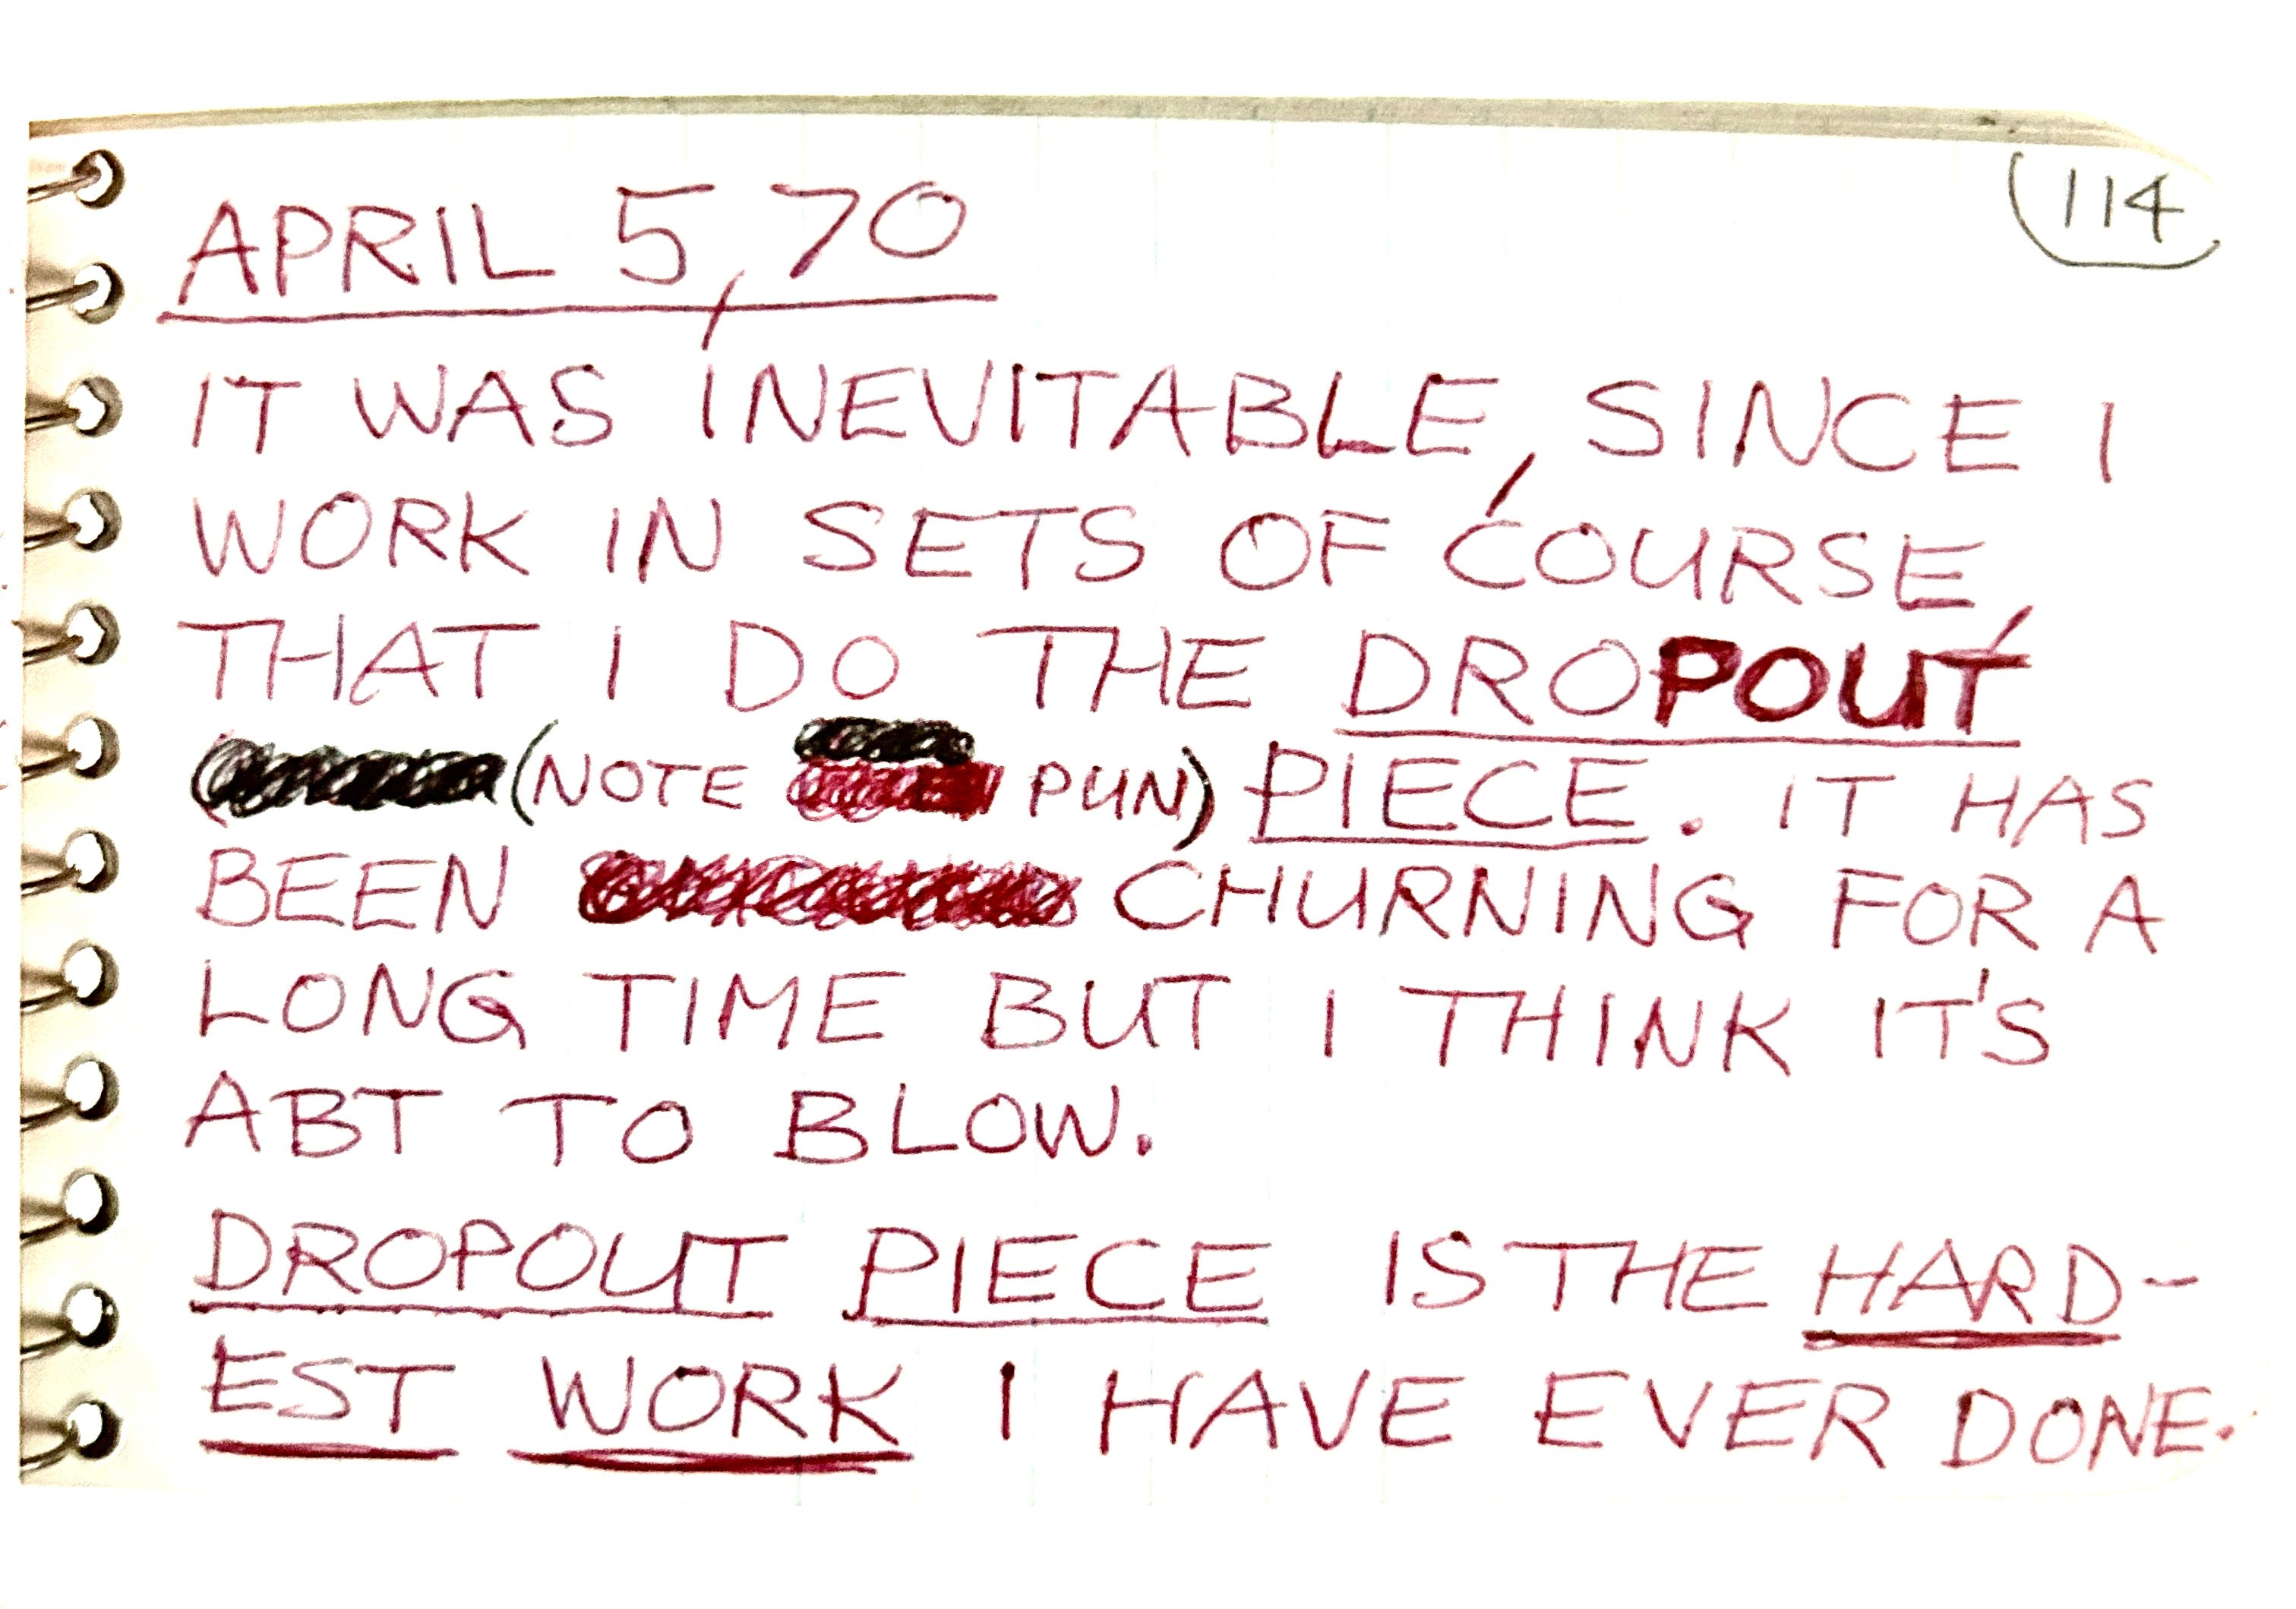 APRIL 5, 70
114
IT WAS INEVITABLE, SINCE I
WORK IN SETS OF COURSE,
THAT I DO THE DROPOUT
(NOTE PUN) PIECE. IT HAS
BEEN CHURNING FOR A
LONG TIME BUT I THINK IT'S
ABT TO BLOW.
DROPOUT PIECE IS THE HARD-
EST WORK I HAVE EVER DONE.